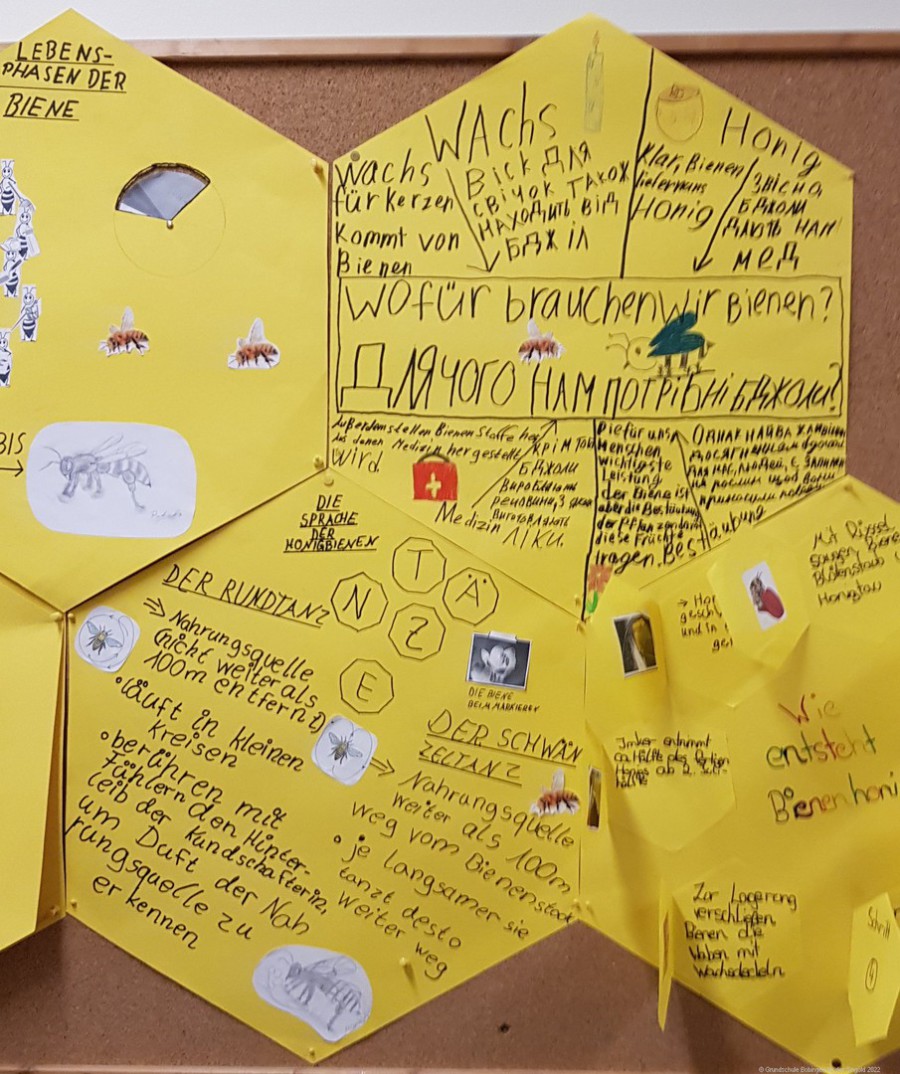 LEBENS-
PHASEN DER
BIENE
BIS
WACHS
Wachs
für Kerzen
kommt von
Bienen
ВІСК ДЛЯ
СВІЧОК ТАКОЖ
НАХОДИТЬ ВІД
БДЖІЛ
Honig
Klar, Bienen
liefern uns
Honig
ЗВІСНО,
БДЖОЛИ
ДАЮТЬ НАМ
МЕД
Wofür brauchen wir Bienen?
ДЛЯ ЧОГО НАМ ПОТРІБНІ БДЖОЛИ?
Außerdem stellen Bienen Stoffe her
aus denen Medizin hergestellt
wird
Medizin
КРІМ ТОГО
БДЖОЛИ
Виробляють
речовини, з
виготовляють
ЛІКИ.
Die für uns
Menschen
wichtigste
Leistung
der Biene ist
aber die Bestäubung
der Pflanzen damit
diese Früchte
tragen.
Bestäubung
ОДНАК НАЙВАЖЛИВІШИМ
ДЛЯ НАС, ЛЮДЕЙ, Є
DIE
SPRACHE
DER
HONIGBIENEN
T
N Ä
Z
E
DER RUNDTANZ
⇒ Nahrungsquelle
(nicht weiter als
100m entfernt)
• läuft in kleinen
Kreisen
• berühren mit
Fühlern den Hinter-
leib der Kundschafterin,
um Duft der Nah
rungsquelle zu
erkennen
DIE BIENE
BEIM MARKIEREN
DER SCHWÄN
ZELTANZ
⇒ Nahrungsquelle
weiter als 100m
weg vom Bienenstock
• je langsamer sie
tanzt desto
weiter weg
Mit Rüssel
saugen Biene
Blütenstaub
Honigtau
→ Hon
gesch
und in
ge
Wie
entsteht
Bienenhoni
Imker entnimmt
Zur Lagerung
verschließen
Bienen die
Waben mit
Wachsdeckeln
Schritt
4
© Grundschule 2022